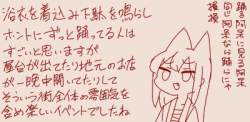 踊る阿呆に見る阿呆
同じ阿呆なら踊らにゃ
損損
浴衣を着込み下駄を鳴らし
ホントにずっと踊ってる人は
すごいと思いますが
屋台が出てたり地元のお店
が一晩中開いてたりして
そういう街全体の雰囲気を
含め楽しいイベントでしたね